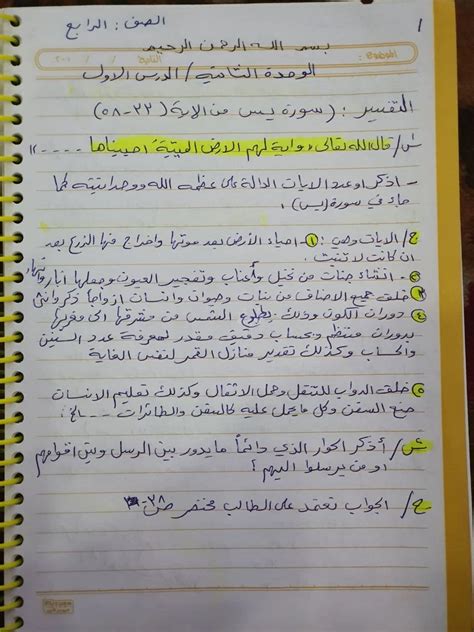 ١
الصف : الرابع
بسم الله الرحمن الرحيم
الوحدة الثانية / الدرس الاول
التفسير : ( سورة يس من الآية ( ٣٣ - ٥٨ )
س/ قال الله تعالى (( واية لهم الارض الميتة احييناها ---- ))
- اذكر او عدد الايات الدالة على عظمة الله ووحدانيته كما
جاء في سورة (يس) ؟
ج/ الايات وهي : ١- احياء الأرض بعد موتها واخراج منها الزرع بعد
ان كانت لا تنبت .
٢- انشاء جنات من نخيل وأعناب وتفجير العيون وجعلها آبار وانهار
٣- خلقه جميع الاصناف من نبات وحيوان وانسان ازواجاً ذكر وانثى
٤- دوران الكون وذلك بطلوع الشمس من مشرقها الى مغربها
بدوران منتظم وبحساب دقيق مقدر لمعرفة عدد السنين
والحساب وكذلك تقدير منازل القمر لنفس الغاية
٥- خلقه الدواب للتنقل وحمل الاثقال وكذلك تعليم الانسان
صنع السفن وكل ما يحمل عليه كالسفن والطائرات --- الخ .
س/ أذكر الحوار الذي دائماً ما يدور بين الرسل وبين اقوامهم
او من يرسلوا اليهم ؟
ج/ الجواب تعتمد على الطالب مختصر ص ٣٨ - ٣٩